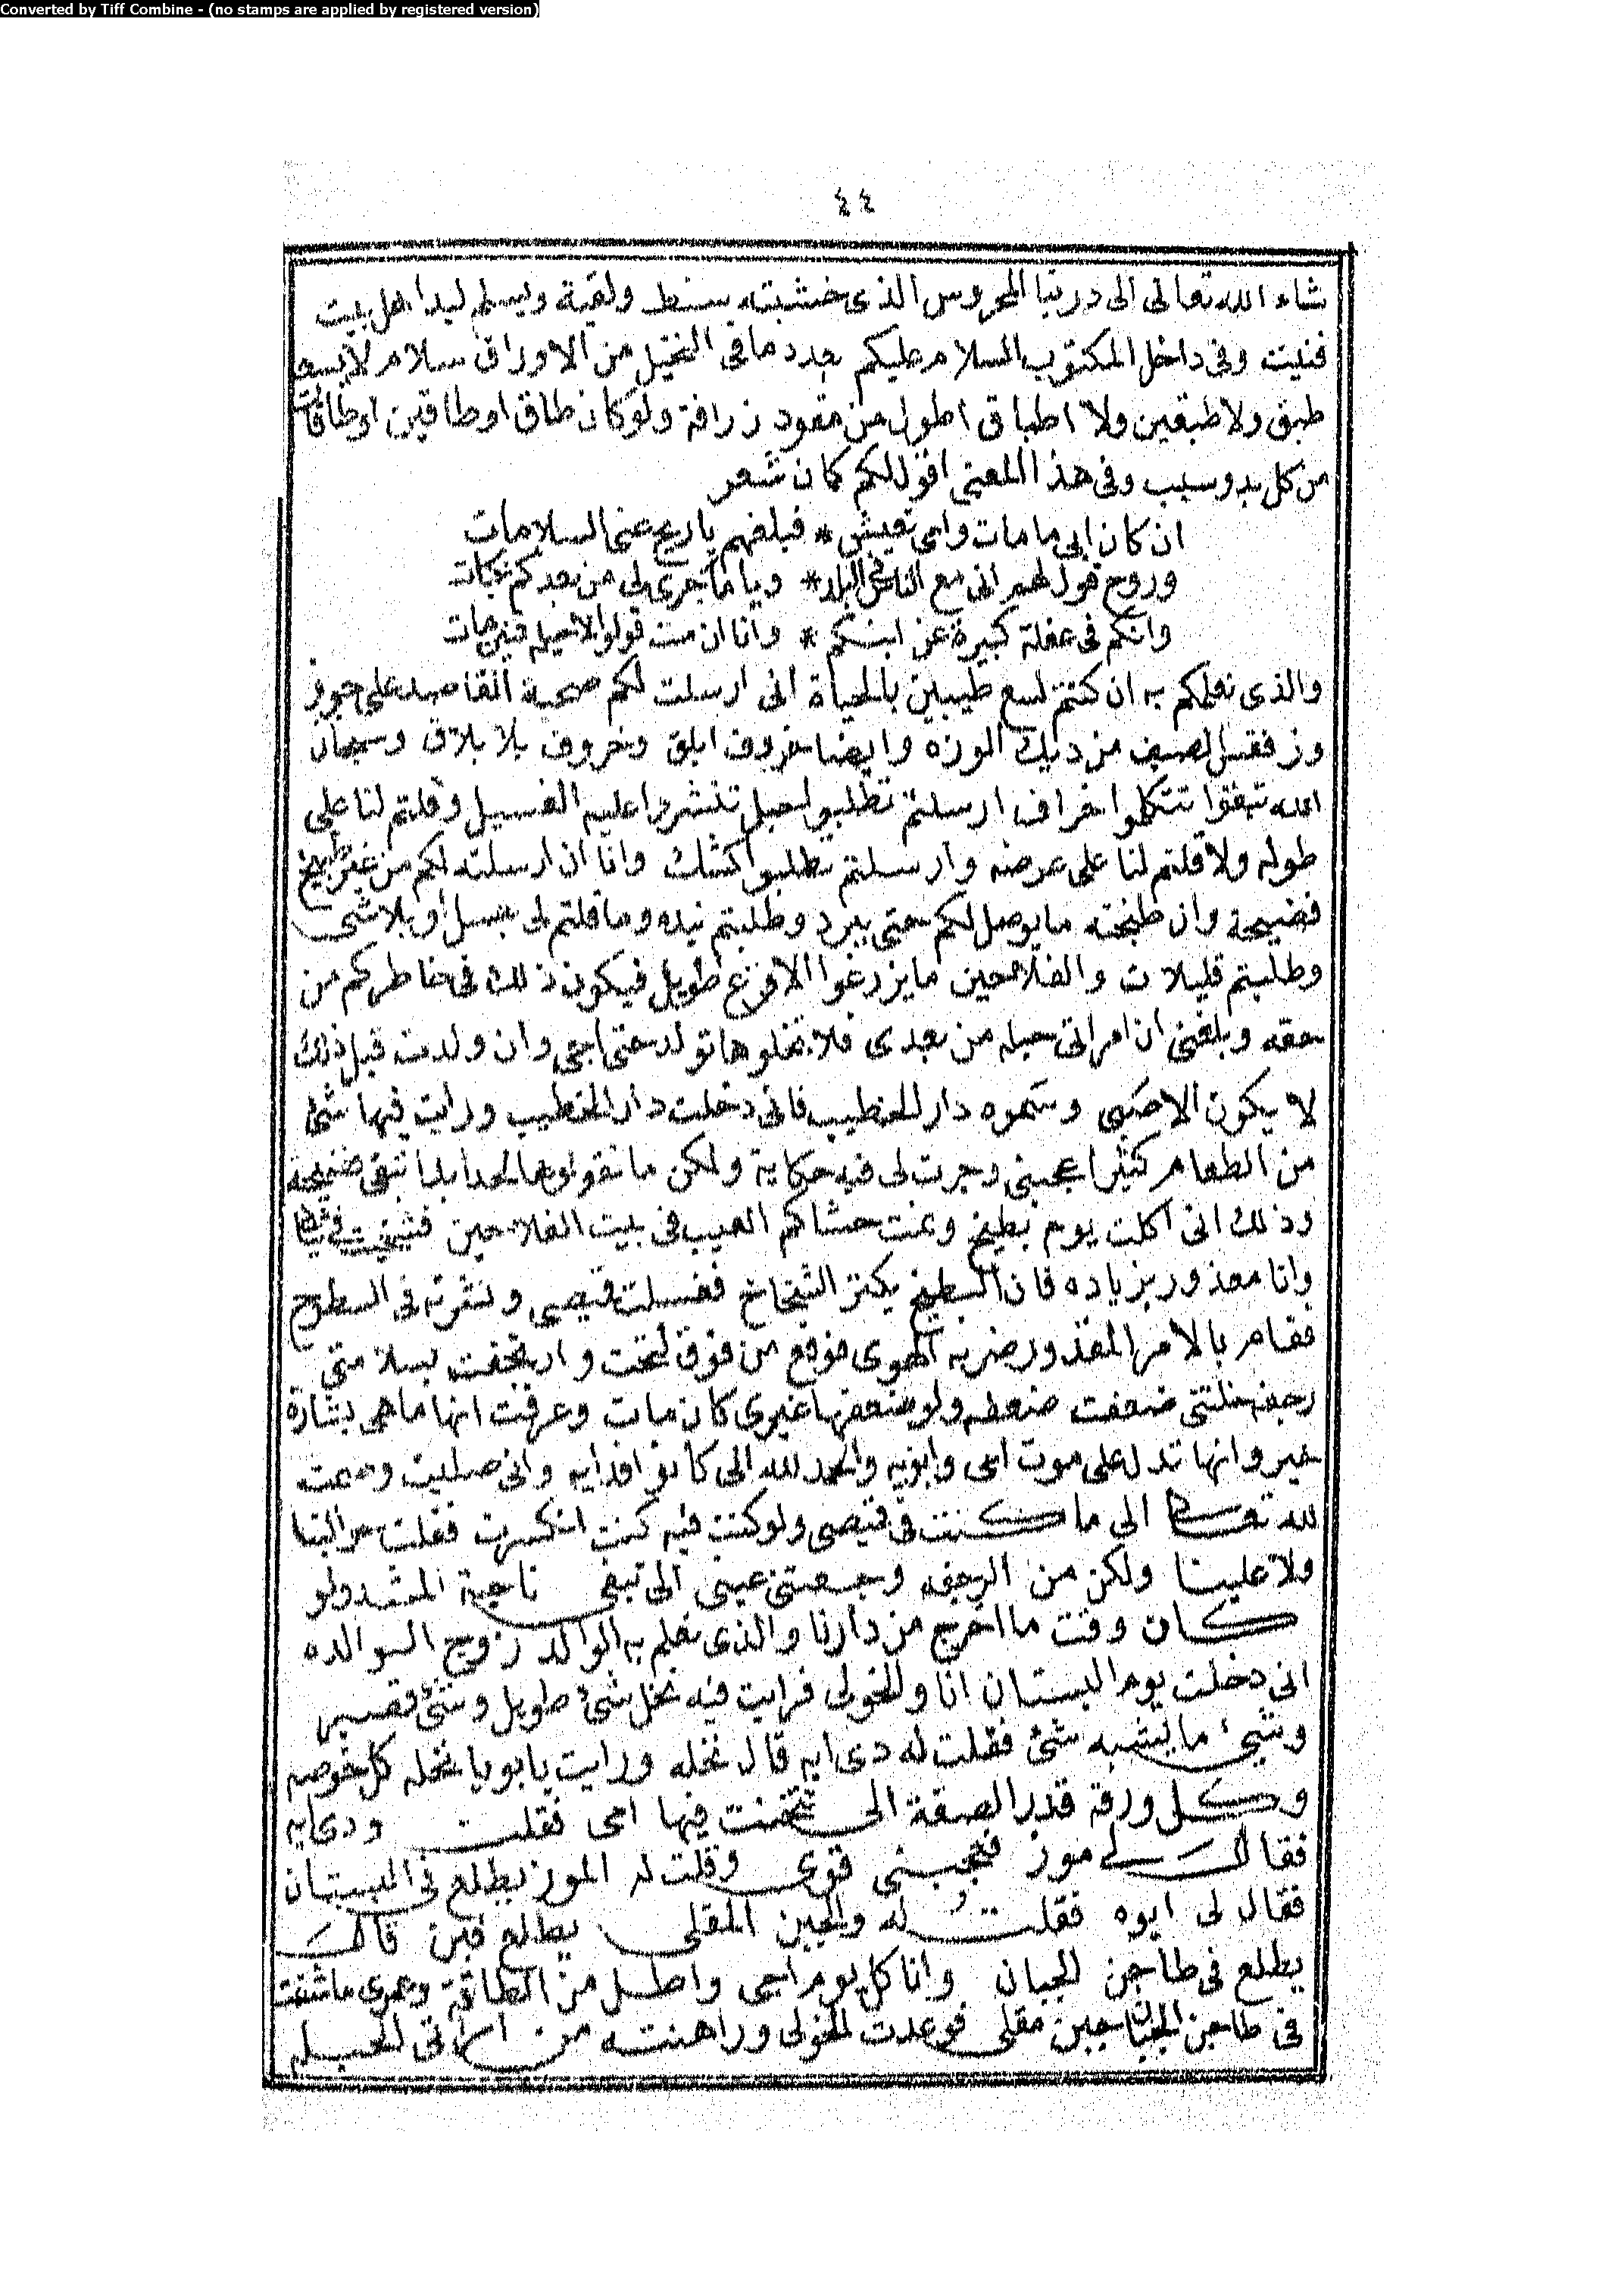 Converted by Tiff Combine - (no stamps are applied by registered version)
٤٤
شاء الله تعالى الى دربنا المحروس الذى خشبته سنط ولقية ويسلم ليدا هل بيت
فنيت وفى داخل المكتوب السلام عليكم بعدد ما فى النخيل من الاوراق سلام لا يسعه
طبق ولا طبقين ولا اطباق اطول من مقود زرافة ولو كان طاق او طاقين او طاقات
من كل بد وسبب وفى هذا المعنى اقول لكم كمان شعر
ان كان ابى ما مات وامى تعيش * فبلغهم ياريح عنى السلامات
وروح قول لهم انى مع الناس فى البلد * وياما جرى لى من بعدكم نكات
وانكم فى غفلة كبيرة عن ابنكم * وانا ان مت قولوا لاحيله فنين مات
والذى نعلمكم به ان كنتم لسع طيبين بالحياة انى ارسلت لكم صحبة القاصد على جوز
وز فقس الصيف من ديك الوزه وايضا خروف ابلق وخروف بلا بلاق وسبحان
الله تبقوا تتكلوا خراف ارسلتم تطلبوا حبل تنشروا عليه الغسيل وقلتم لنا على
طوله ولا قلتم لنا على عرضه وارسلتم تطلبوا كشك وانا ان ارسلته لكم من غير طبيخ
فضيحة وان طبخته ما يوصل لكم حتى يبرد وطلبتم نيده وما قلتم لى بعسل او بلا شى
وطلبتم قليلات والفلاحين ما يزرعوا الا قرع طويل فيكون ذلك فى خاطركم من
حقه وبلغنى ان امراتى حبله من بعدى فلا تخلوها تولد حتى اجى وان ولدت قبل ذلك
لا يكون الا صبى وسموه دار الخطيب فانى دخلت دار الخطيب ورايت فيها شئ
من الطعام كثير اعجبنى وجرت لى فيه حكاية ولكن ما تقولوها لحد ابدا تبقى فضيحة
وذلك انى اكلت يوم بطيخ ونمت حشاكم العيب فى بيت الفلاحين فشخيت فى
وانا معذور بزياده فان البطيخ يكتر الشخاخ فغسلت قميصى ونشرته فى السطوح
فقام بالامر المقدور ضربه الهوى فوقع من فوق لتحت وارتجفت بسلامتى
رجفه خلتنى ضعفت ضعفه ولو ضعفها غيرى كان مات وعرفت انها ما هى بشارة
خير وانها تدل على موت امى وابويه والحمد لله الى كانو افدايه وانى صليت وصمت
لله تعالى الى ما كنت فى قميصى ولو كنت فيه كنت انكسرت فقلت حوالينا
ولا علينا ولكن من الرجفه وجعتنى عينى الى تبقى ناحية المشد ولو
كان وقت ما اخرج من دارنا والذى نعلم به الوالد زوج السوالده
انى دخلت يوم البستان انا والخولى فرايت فيه نخل شئ طويل وشئ قصير
وشئ ما يشبه شئ فقلت له دى ايه قال نخله ورايت يابويا نخله كل خوصه
وكل ورقة قدر الصفة الى تكفنت فيها امى فقلت ودى ايه
فقال لى موز فعجبنى قوى وقلت له الموز يطلع فى البستان
فقال لى ايوه فقلت له والجبن المقلى يطلع فين قال
يطلع فى طاجن الجبان وانا كل يوم اجى واطل من الطاقة وعمرى ما شفت
فى طاجن الجبان جبن مقلى فوعدت الخولى وراهنته من امراتى الحبله